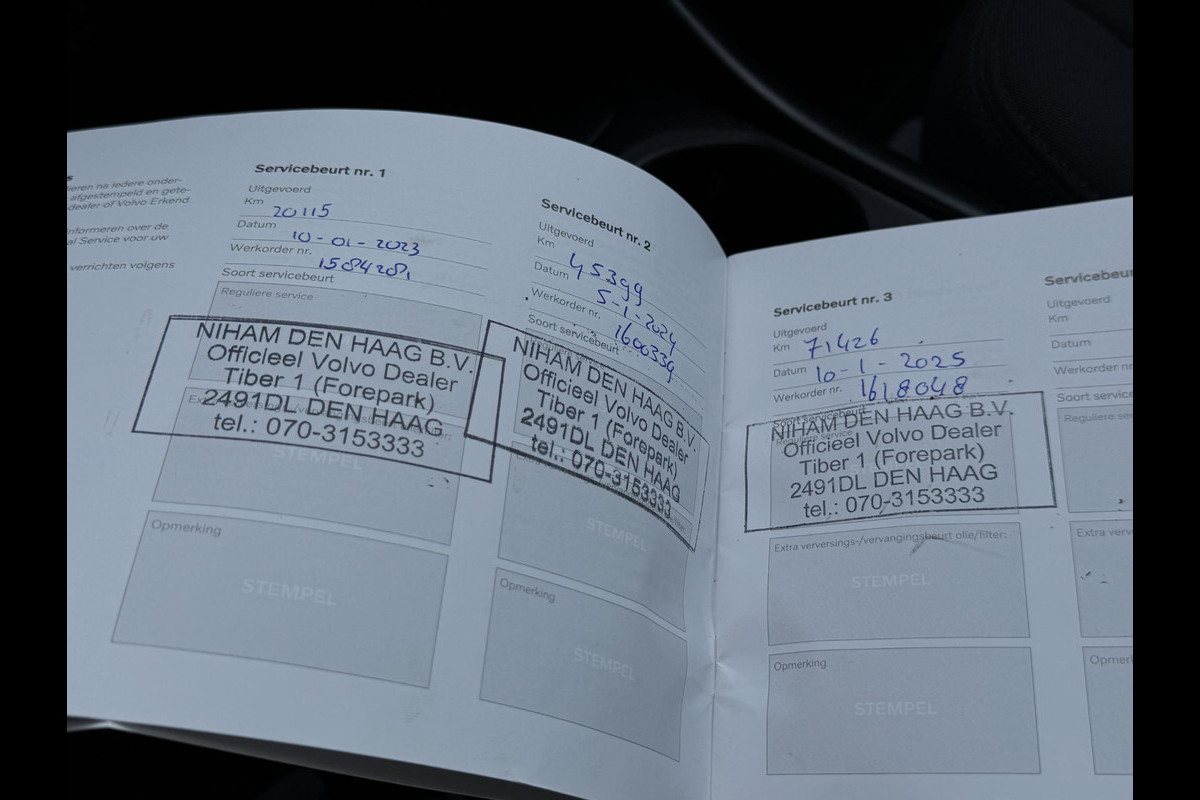 s
ieren na iedere onder-
afgestempeld en gete-
dealer of Volvo Erkend
informeren over de
al Service voor uw
verrichten volgens
Servicebeurt nr. 1
Uitgevoerd
Km 20115
Datum 10-01-2023
Werkorder nr. 1584281
Soort servicebeurt
Reguliere service
NIHAM DEN HAAG B.V.
Officieel Volvo Dealer
Tiber 1 (Forepark)
2491DL DEN HAAG
tel.: 070-3153333
STEMPEL
Opmerking
STEMPEL
Servicebeurt nr. 2
Uitgevoerd
Km 45399
Datum 5-1-2024
Werkorder nr. 1600339
Soort servicebeurt
Reguliere service
NIHAM DEN HAAG B.V.
Officieel Volvo Dealer
Tiber 1 (Forepark)
2491DL DEN HAAG
tel.: 070-3153333
STEMPEL
Opmerking
STEMPEL
Servicebeurt nr. 3
Uitgevoerd
Km 71426
Datum 10-1-2025
Werkorder nr. 1618048
Soort servicebeurt
Reguliere service
NIHAM DEN HAAG B.V.
Officieel Volvo Dealer
Tiber 1 (Forepark)
2491DL DEN HAAG
tel.: 070-3153333
Extra verversings-/vervangingsbeurt olie/filter:
STEMPEL
Opmerking
STEMPEL
Servicebeu
Uitgevoerd
Km
Datum
Werkorder nr
Soort service
Reguliere se
Extra verv
Opmer